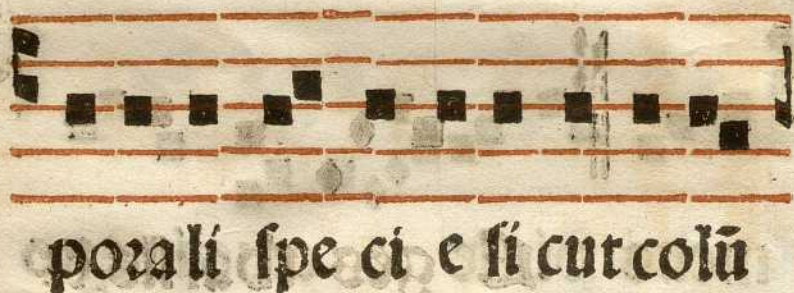 porali spe ci e si cut colū